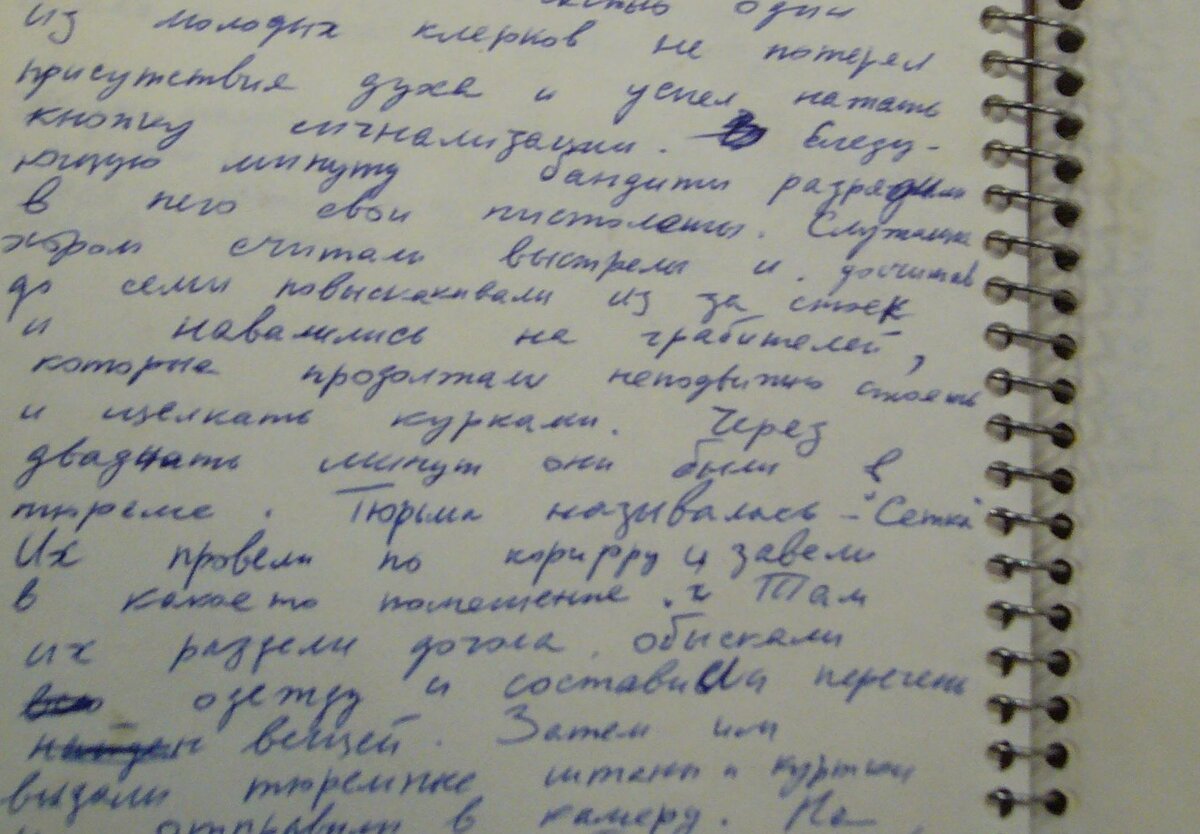 один
из молодых клерков не потерял
присутствия духа и успел нажать
кнопку сигнализации. Следу-
ющую минуту бандиты разрядили
в него свои пистолеты. Служащие
хором считали выстрелы и досчитав
до семи повыскакивали из за стоек
и навалились на грабителей,
которые продолжали неподвижно стоять
и щелкать курками. Через
двадцать минут они были в
тюрьме. Тюрьма называлась - "Сетка"
Их провели по корирру и завели
в какое то помещение. Там
их раздели догола, обыскали
одежду и составили перечень
вещей. Затем им
выдали тюремные штаны и куртки
отправили в камеру. На